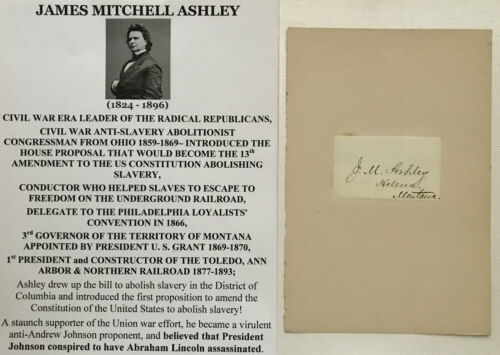 JAMES MITCHELL ASHLEY
(1824 - 1896)
CIVIL WAR ERA LEADER OF THE RADICAL REPUBLICANS,
CIVIL WAR ANTI-SLAVERY ABOLITIONIST
CONGRESSMAN FROM OHIO 1859-1869– INTRODUCED THE
HOUSE PROPOSAL THAT WOULD BECOME THE 13th
AMENDMENT TO THE US CONSTITUTION ABOLISHING
SLAVERY,
CONDUCTOR WHO HELPED SLAVES TO ESCAPE TO
FREEDOM ON THE UNDERGROUND RAILROAD,
DELEGATE TO THE PHILADELPHIA LOYALISTS'
CONVENTION IN 1866,
3rd GOVERNOR OF THE TERRITORY OF MONTANA
APPOINTED BY PRESIDENT U. S. GRANT 1869-1870,
1st PRESIDENT and CONSTRUCTOR OF THE TOLEDO, ANN
ARBOR & NORTHERN RAILROAD 1877-1893;
Ashley drew up the bill to abolish slavery in the District of
Columbia and introduced the first proposition to amend the
Constitution of the United States to abolish slavery!
A staunch supporter of the Union war effort, he became a virulent
anti-Andrew Johnson proponent, and believed that President
Johnson conspired to have Abraham Lincoln assassinated.
J. M. Ashley
Helena,
Montana.